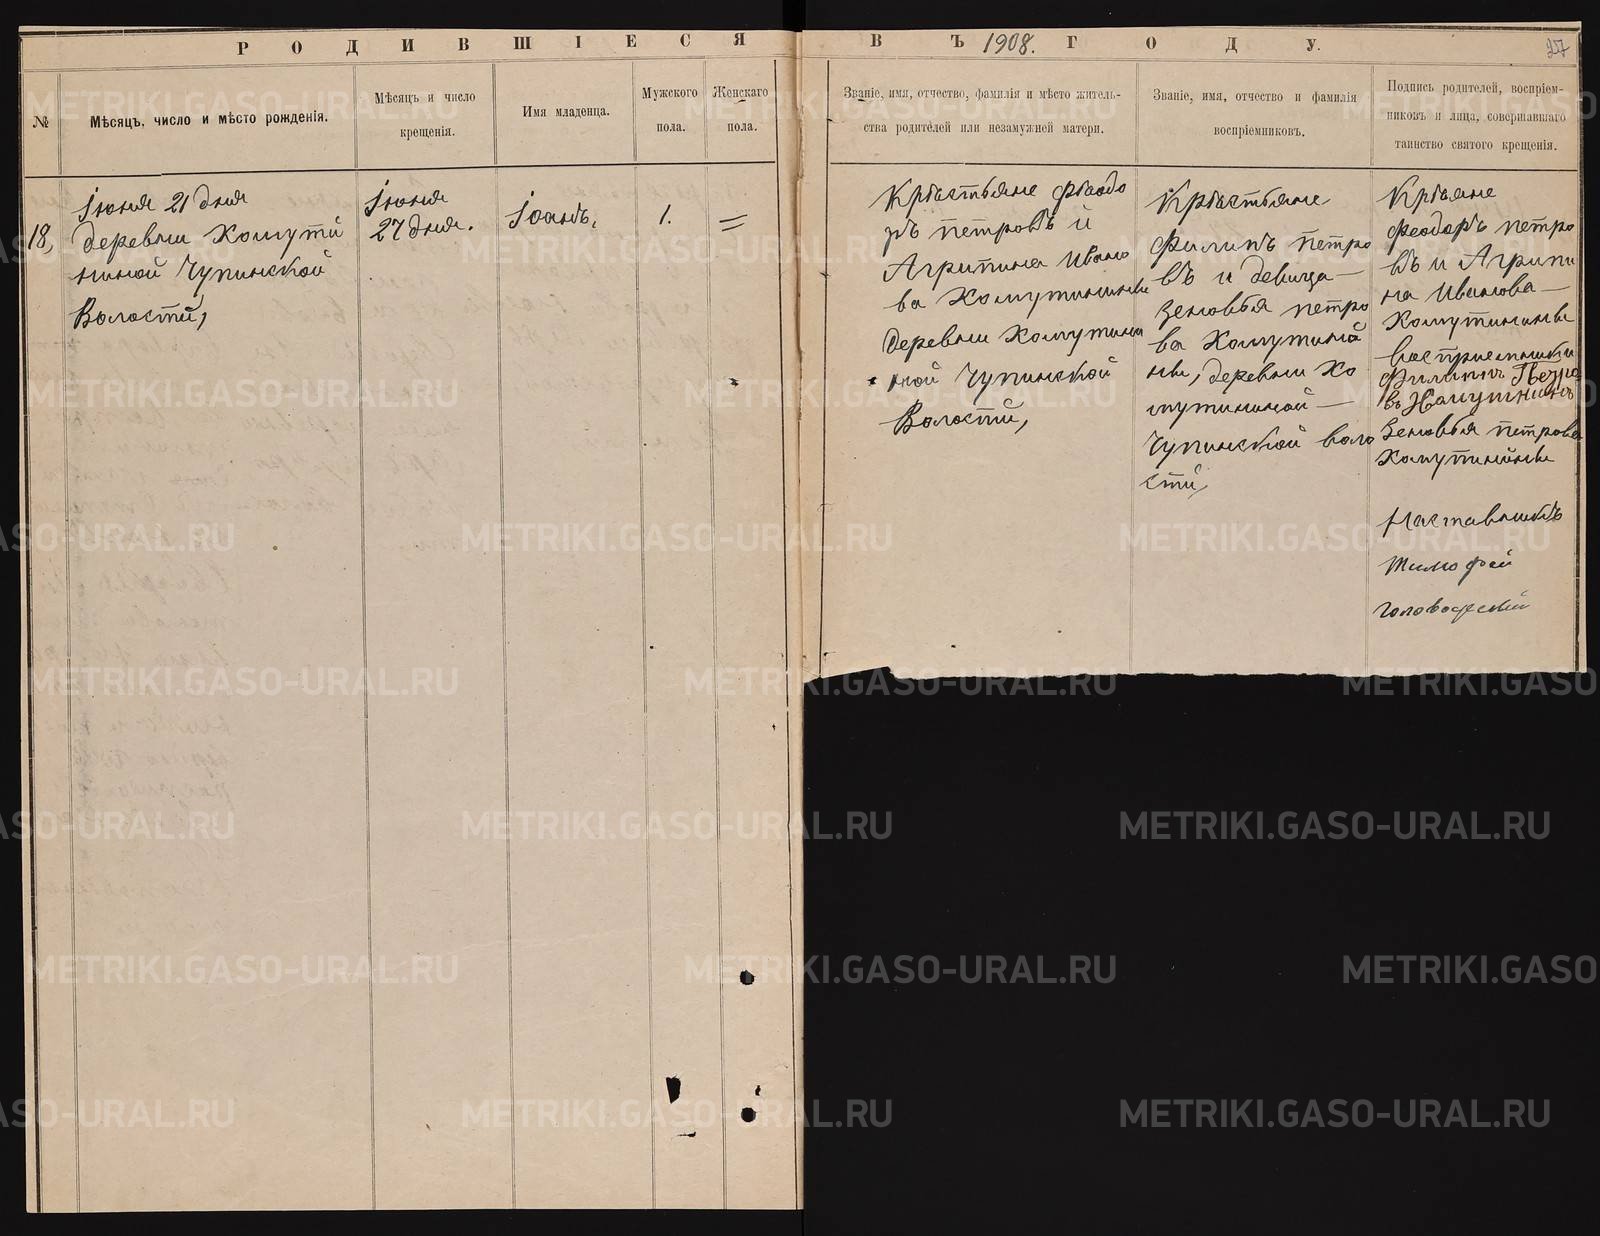 РОДИВШІЕСЯ
ВЪ 1908. ГОДУ.
№
Мѣсяцъ, число и мѣсто рожденія.
Мѣсяцъ и число
крещенія.
Имя младенца.
Мужского
пола.
Женскаго
пола.
Званіе, имя, отчество, фамилія и мѣсто житель-
ства родителей или незамужней матери.
Званіе, имя, отчество и фамилія
воспріемниковъ.
Подпись родителей, воспріем-
никовъ и лица, совершавшаго
таинство святого крещенія.
18,
Іюня 21 дня
деревни Хомути
ниной Чупинской
Волости,
Іюня
27 дня.
Іоанъ,
1.
=
Крѣстьяне Фѣодо
ръ петровъ и
Агрипина Ивано
ва Хомутинины
деревни Хомутини
ной Чупинской
Волости,
Крѣстьяне
Филипъ петро
въ и девица —
Зеновья петро
ва Хомутини
ны, деревни Хо
мутининой —
Чупинской воло
сти,
Крѣяне
Феодоръ петро
въ и Агрипи
на Иванова —
Хомутинины
восприемники
Филиппъ Петро
въ Хомутининъ
Зеновья петрова
Хомутинины
Наставникъ
Тимофей
METRIKI.GASO-URAL.RU